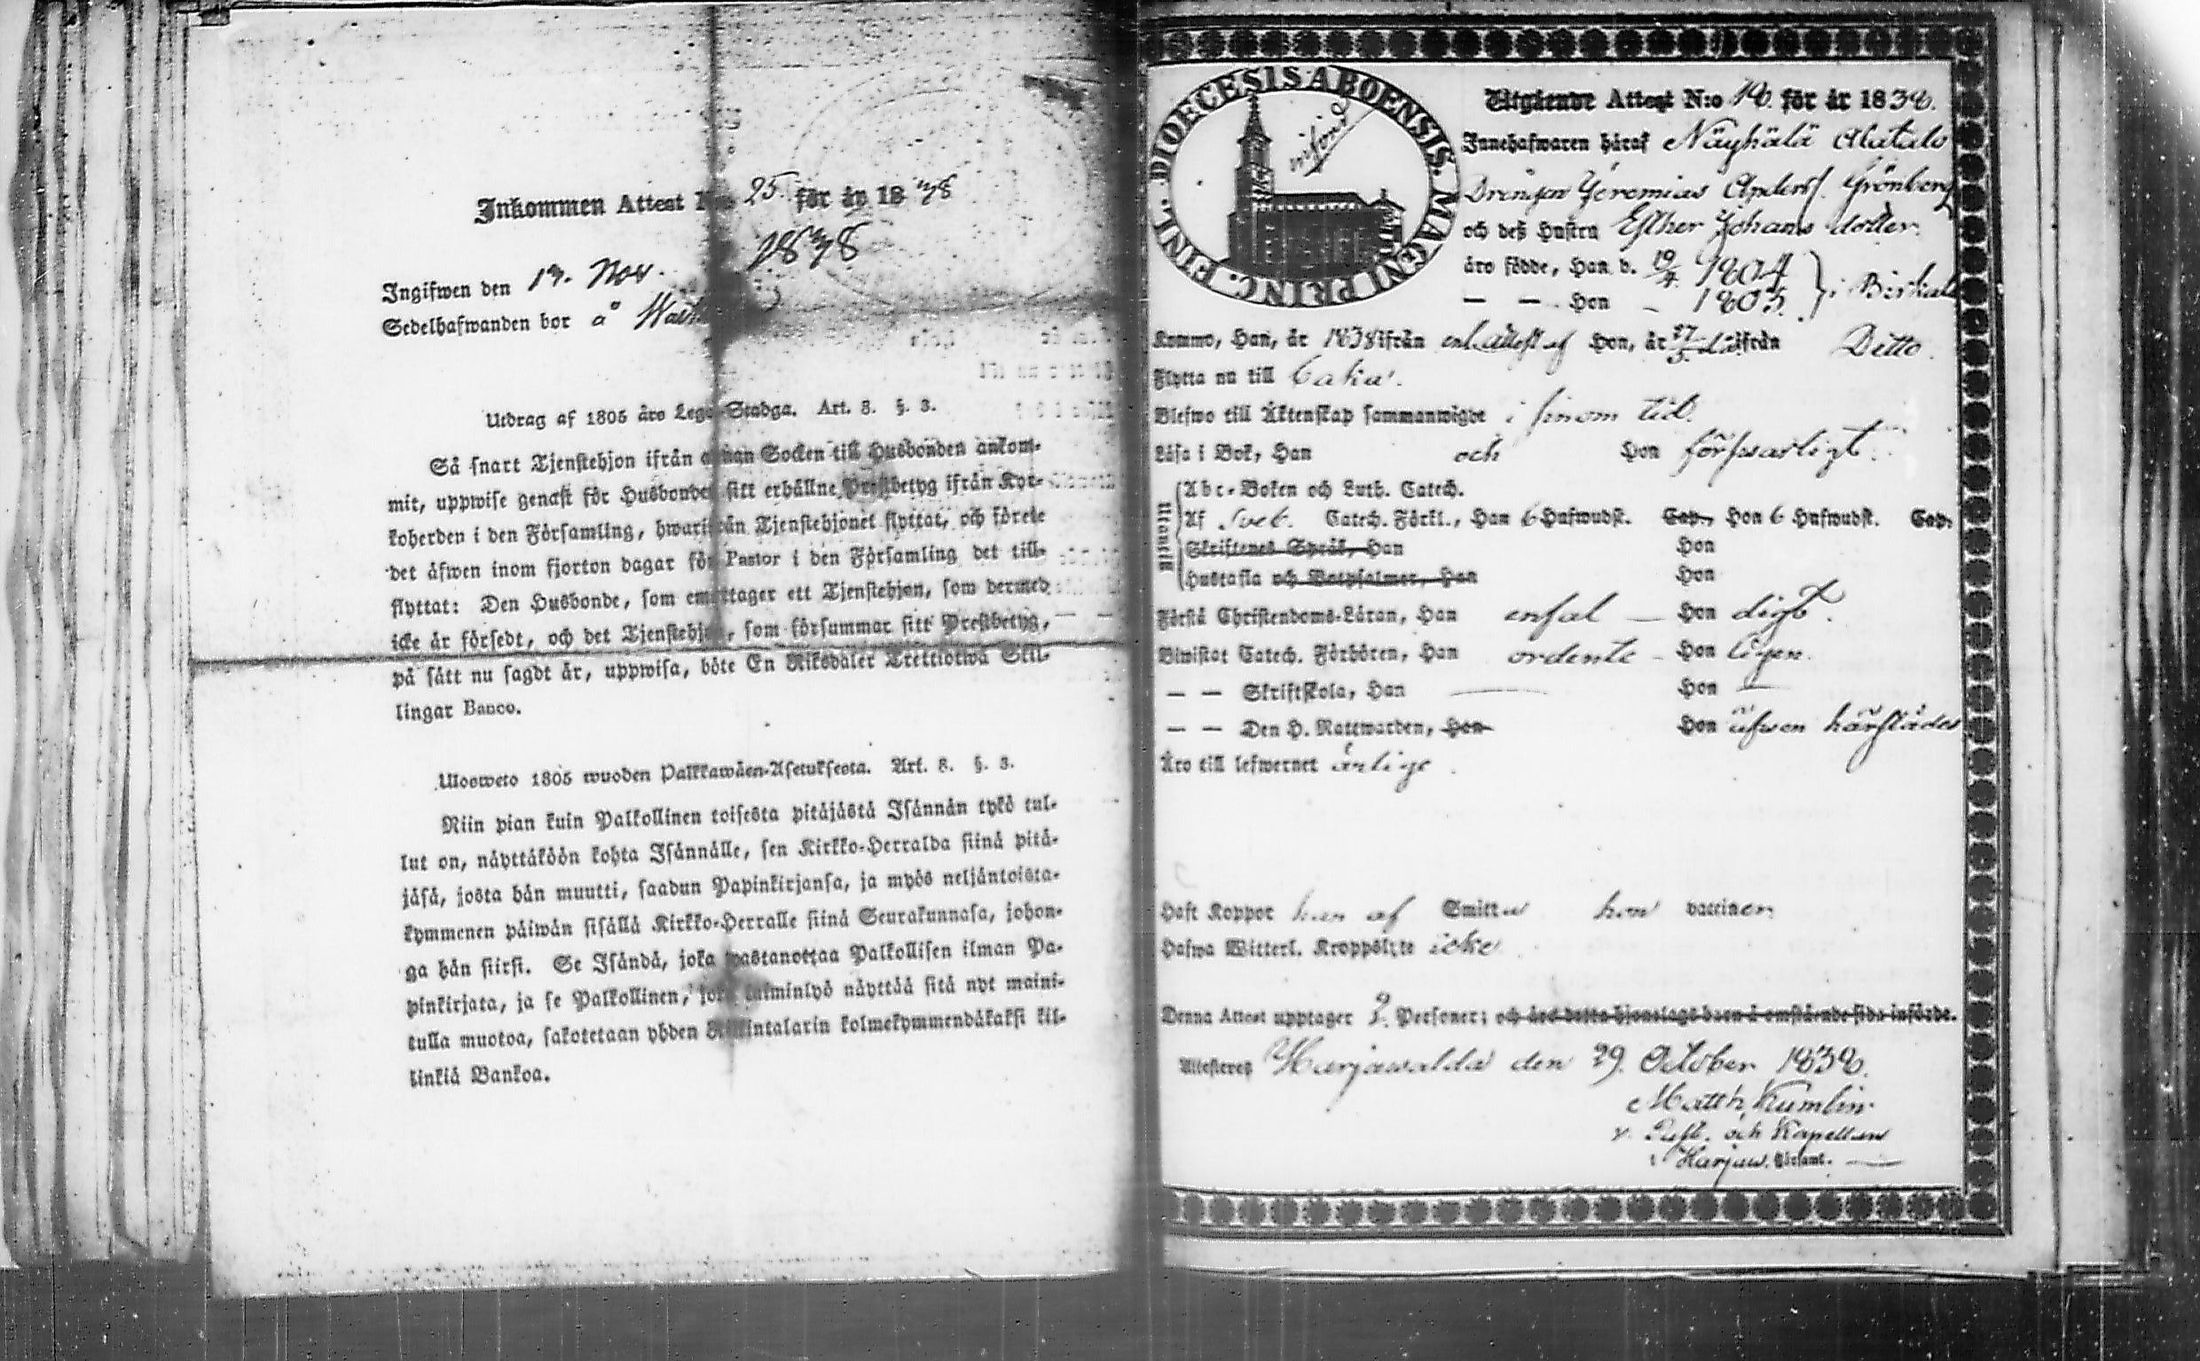 Inkommen Attest N:o 25 för år 1838
1838
Ingifwen den 13. Nov.
Sedelhafwanden bor å
Utdrag af 1805 års Lego-Stadga. Art. 8. §. 3.
Så snart Tjenstehjon ifrån annan Socken till Husbonden ankom-
mit, uppwise genast för Husbonden sitt erhållne Prestbetyg ifrån Kyr-
koherden i den Församling, hwarifrån Tjenstehjonet flyttat, och förete
det äfwen inom fjorton dagar för Pastor i den Församling det till-
flyttat: Den Husbonde, som emottager ett Tjenstehjon, som dermed
icke är försedt, och det Tjenstehjon, som försummar sitt Prestbetyg,
på sätt nu sagdt är, uppwisa, böte En Riksdaler Trettiotwå Skil-
lingar Banco.
Ulosweto 1805 wuoden Palkkawäen-Asetuksesta. Art. 8. §. 3.
Niin pian kuin Palkollinen toisesta pitäjästä Isännän tykö tul-
lut on, näyttäköön kohta Isännälle, sen Kirkko-Herralda siinä pitä-
jäsä, josta hän muutti, saadun Papinkirjansa, ja myös neljäntoista-
kymmenen päiwän sisällä Kirkko-Herralle siinä Seurakunnasa, johon-
ga hän siirsi. Se Isändä, joka wastanottaa Palkollisen ilman Pa-
pinkirjata, ja se Palkollinen, joka laiminlyö näyttää sitä nyt maini-
tulla muotoa, sakotetaan yhden Riikintalarin kolmekymmendäkaksi kil-
linkiä Bankoa.
DIOECESIS ABOENSIS. MAGNI PRINC. FINL.
införd
Utgående Attest N:o 18. för år 1838.
Innehafwaren häraf Näyhälä Alatalo
Drengen Jeremias Anderss. Grönberg
och deß Hustru Esther Johans dotter.
äro födde, Han d. 19/4 1804 } i Birkala
— — Hon — 1805.
Kommo, Han, år 1838 ifrån enl. attest af Hon, år 27/5 d:o ifrån Ditto.
Flytta nu till
Blefwo till Äktenskap sammanwigde i sinom tid.
Läsa i Bok, Han och Hon förswarligt.
Utantill
Abc-Boken och Luth. Catech.
Af Sveb. Catech. Förkl., Han 6 Hufwudst. Cap., Hon 6 Hufwudst. Cap.
Skriftenes Språk, Han Hon
Hustafla och Botpsalmer, Han Hon
Förstå Christendoms-Läran, Han enfal — Hon digt.
Biwistat Catech. Förhören, Han ordente — Hon ligen.
— — Skriftskola, Han — Hon —
— — Den H. Nattwarden, Han Hon äfwen härstädes
Äro till lefwernet ärlige.
Haft Koppor han af Smitta hon vaccinen
Hafwa Witterl. Kroppslyte icke
Denna Attest upptager 2. Personer; och äro detta hjonelags barn å omstående sida införde.
Attesteres Harjawalda den 29. October 1838.
Matth. Kumlin
v. Past. och Kapellan
i Harjaw. Församl. —